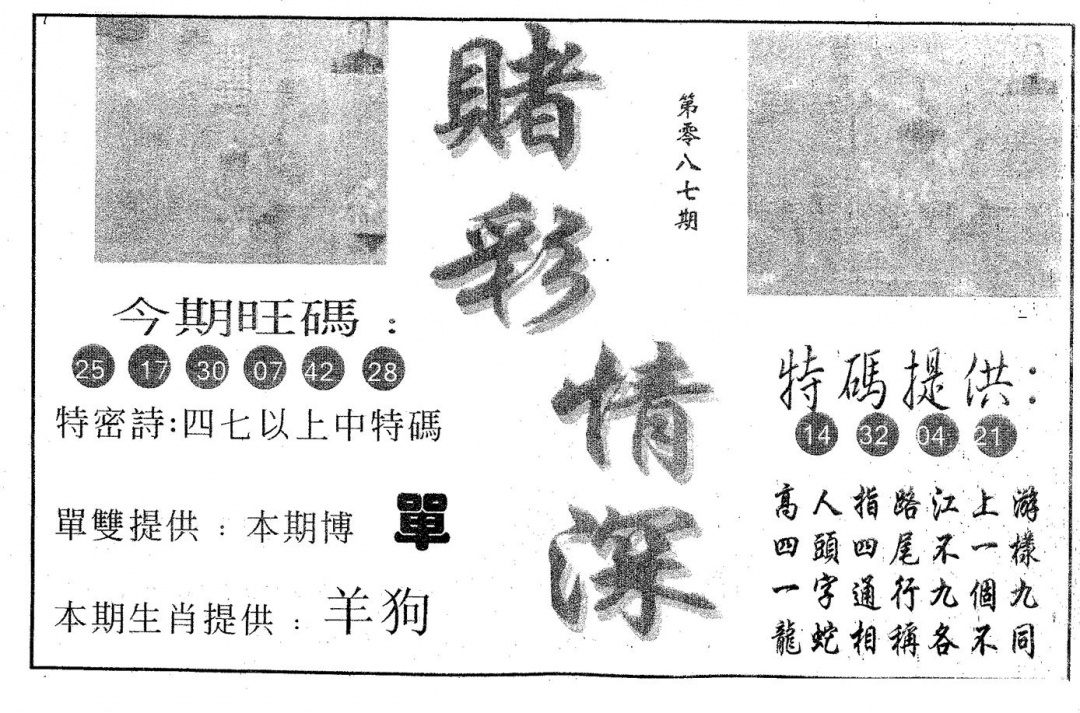 賭彩情深
第零八七期
今期旺碼：
25 17 30 07 42 28
特密詩:四七以上中特碼
單雙提供：本期博 單
本期生肖提供：羊狗
特碼提供：
14 32 04 21
高人指路江上游
四頭四尾不一樣
一字通行九個九
龍蛇相稱各不同